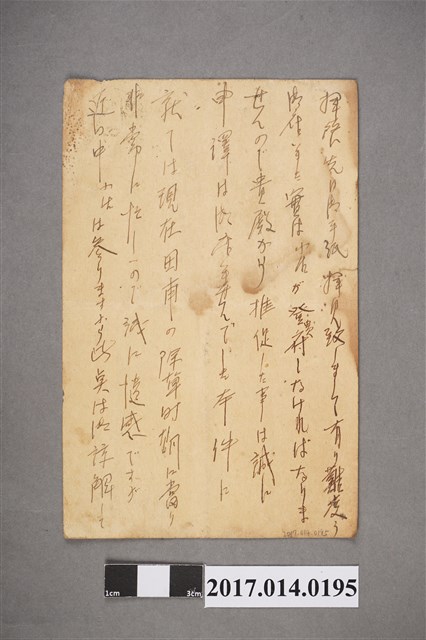 拝啓先日御手紙拝見致しまして有り難度う
御在ました実は小在が発府しなければなりま
せんので貴殿から推促した事は誠に
申譯は御座ませんでした本件に
就ては現在田甫の除草時期に當り
非常に忙しいので誠に遺感ですが
近日中には参りますから此点は御諒解して
2017.014.0195
1cm
3cm
2017.014.0195